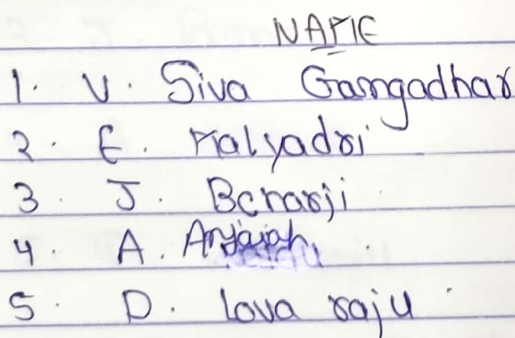 NAME
1. V. Siva Gangadhar
2. E. Malyadri
3. J. Benarji
4. A.
5. D. lova raju